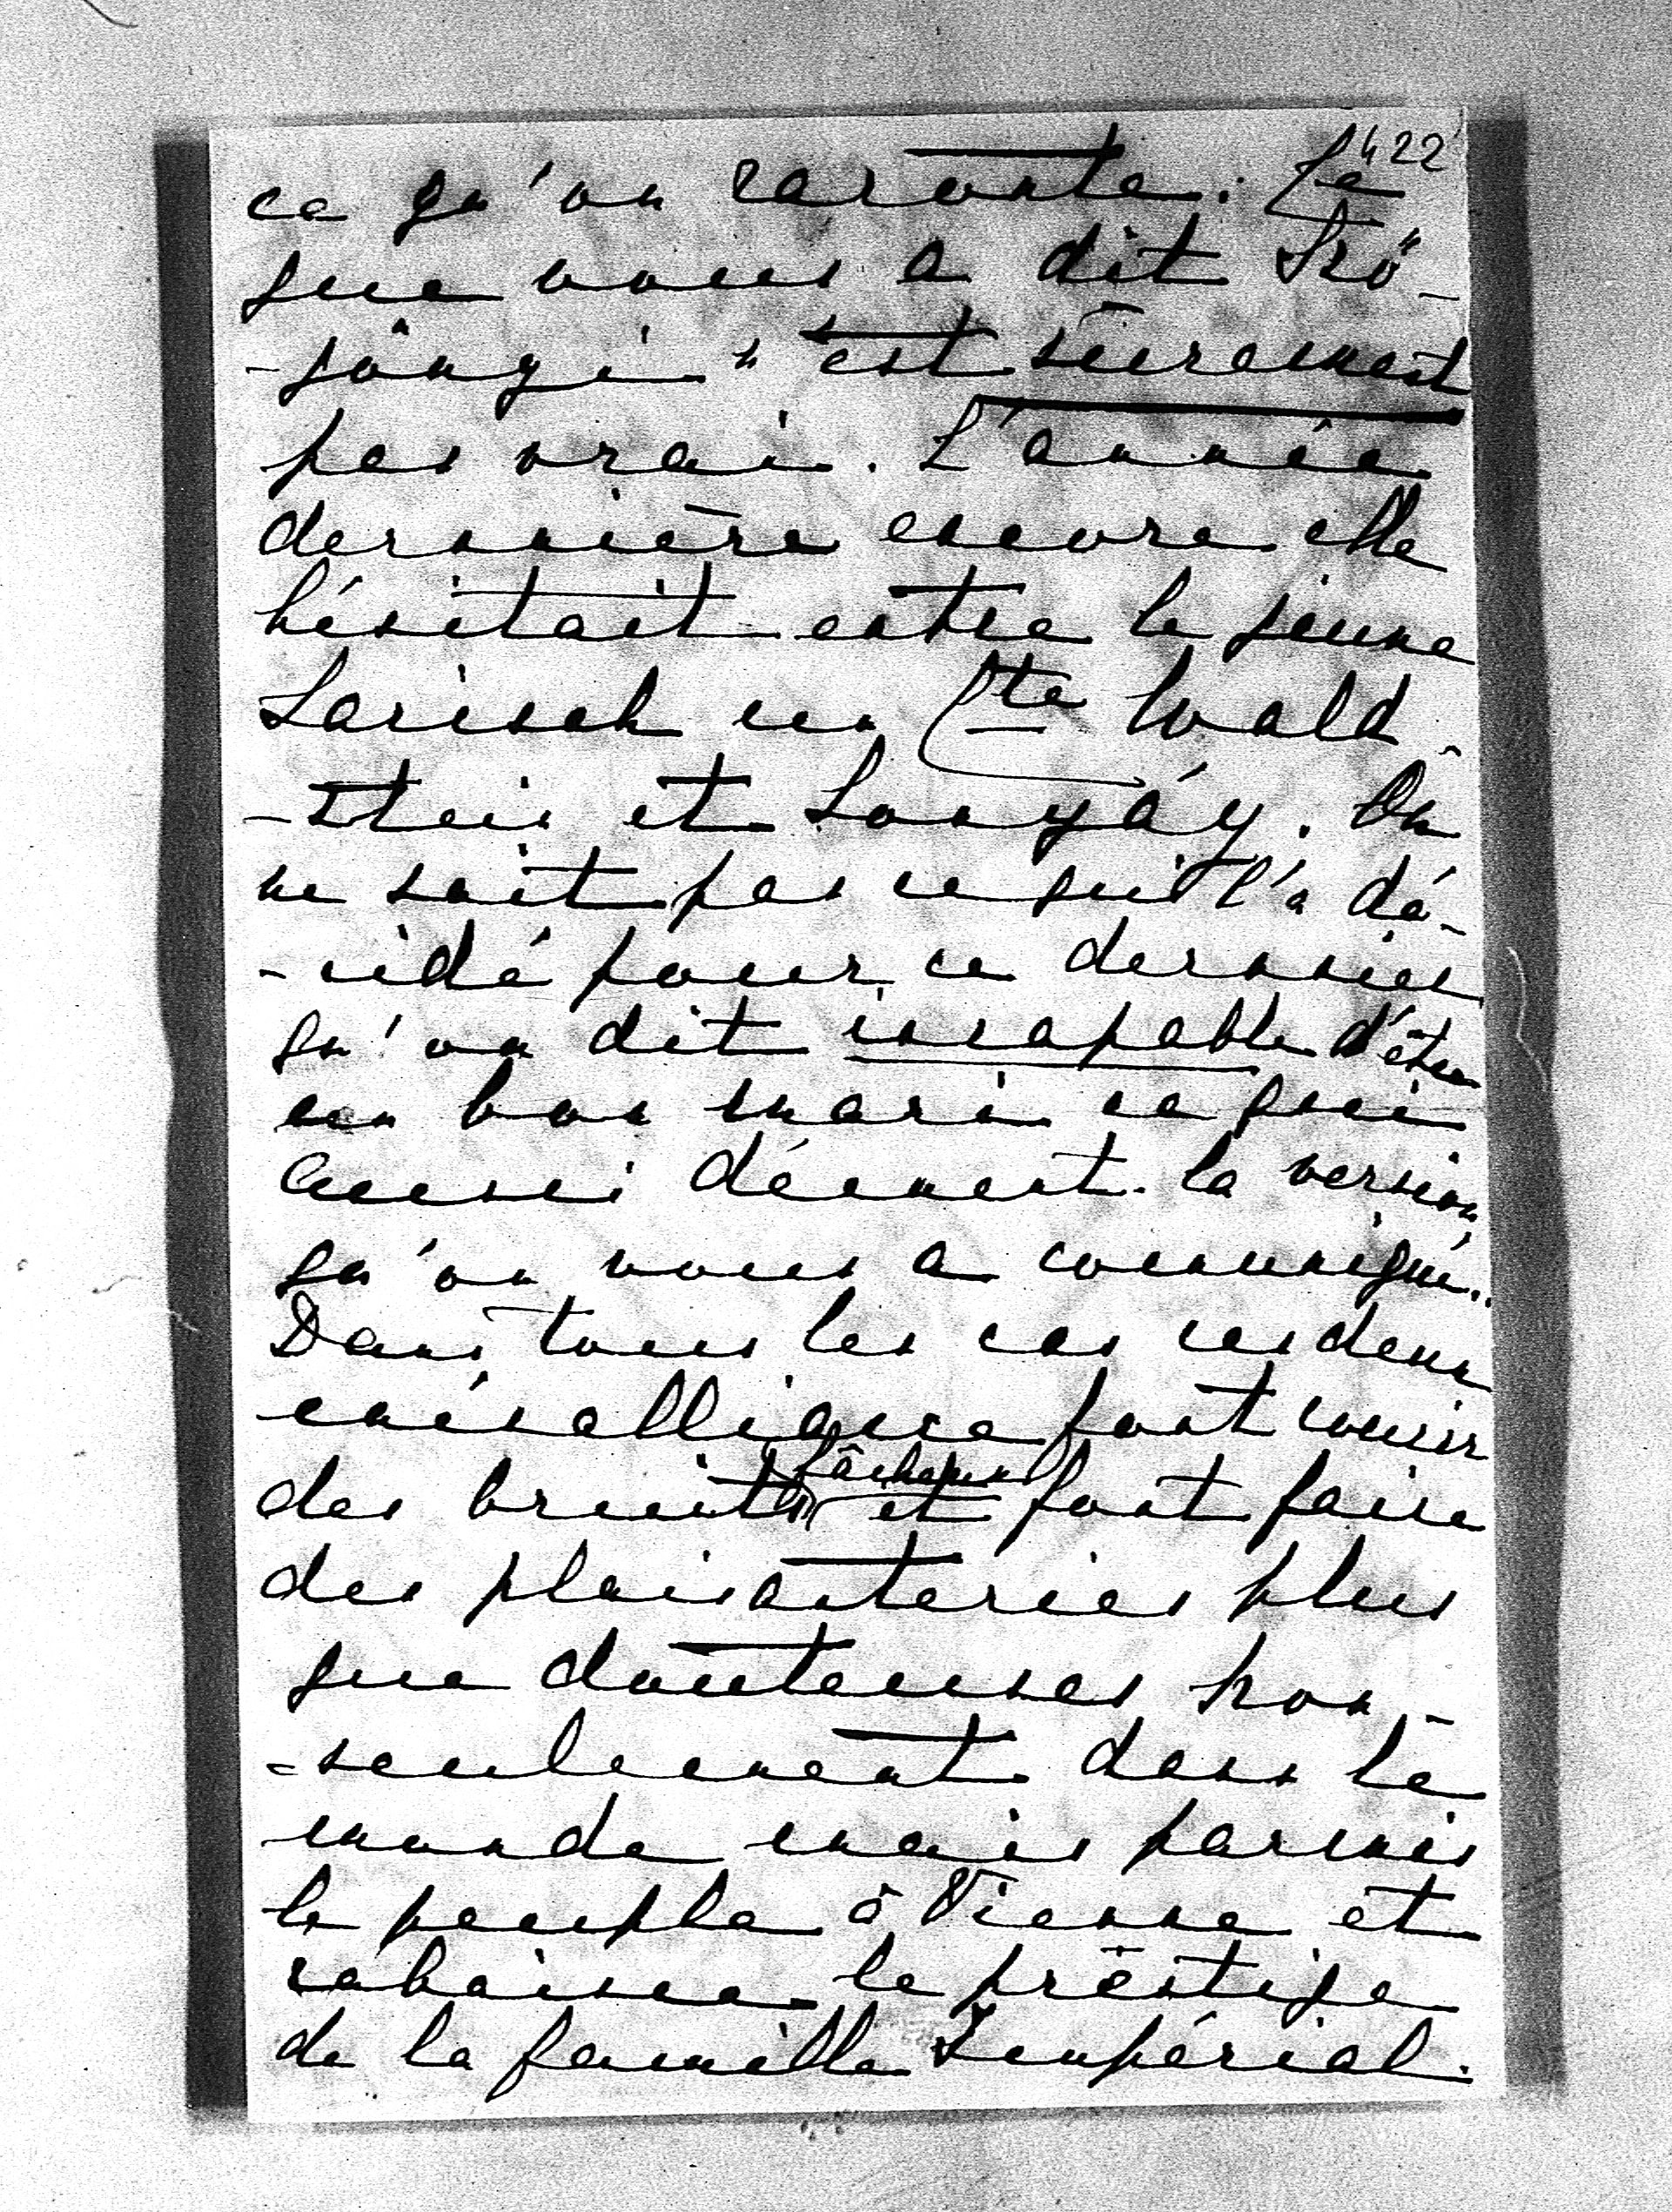 422
ce qu'on raconte. Ce
que vous a dit "Kö-
-söngi" est sûrement
pas vrai. L'année
dernière encore elle
hésitait entre le jeune
Larisch un Cte Wald-
-stein et Lonyáy. On
ne sait pas ce qui l'a dé-
-cidé pour ce dernier
qu'on dit incapable d'être
un bon mari ce qui
aussi dément la version
qu'on vous a comuniqué.
Dans tous les cas ces deux
més alliance font courir
des bruits fâcheux et font faire
des plaisanteries plus
que douteuses non-
-seulement dans le
monde mais parmis
le peuple à Vienne et
rabaisse le préstige
de la famille Impérial.